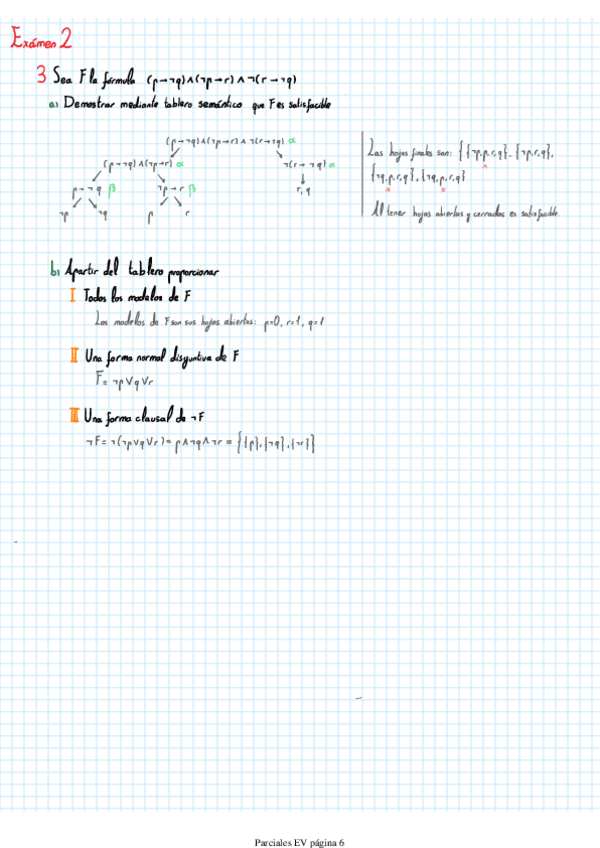 Exámen 2
3 Sea F la fórmula (p→¬q)∧(¬p→r)∧¬(r→¬q)
a) Demostrar mediante tablero semántico que F es satisfacible
(p→¬q)∧(¬p→r)∧¬(r→¬q) α
(p→¬q)∧(¬p→r) α
¬(r→¬q) α
p→¬q β
¬p→r β
r, q
¬p
¬q
p
r
Las hojas finales son: {{¬p,p,r,q}, {¬p,r,q},
x
{¬q,p,r,q}, {¬q,p,r,q}
x x
Al tener hojas abiertas y cerradas es satisfacible.
b) Apartir del tablero proporcionar
I Todos los modelos de F
Los modelos de F son sus hojas abiertas: p=0, r=1, q=1
II Una forma normal disyuntiva de F
F= ¬p∨q∨r
III Una forma clausal de ¬F
¬F= ¬(¬p∨q∨r)= p∧¬q∧¬r = {{p},{¬q},{¬r}}
Parciales EV página 6